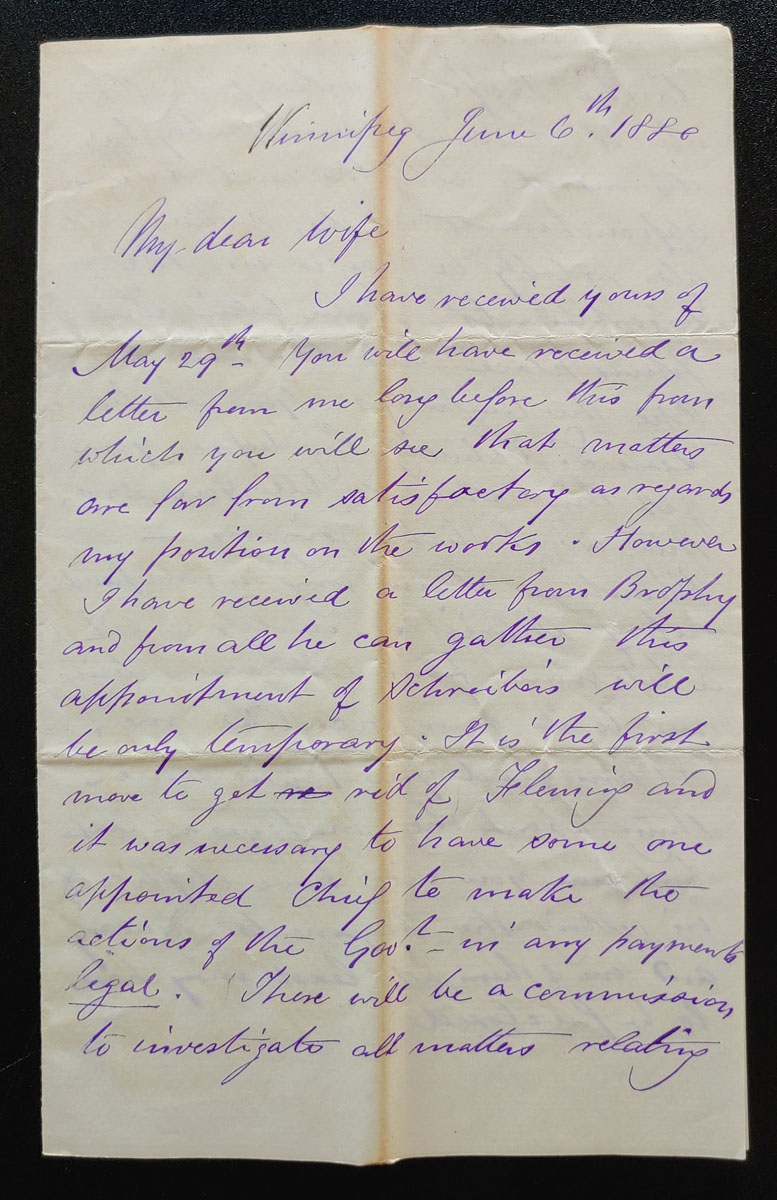 Winnipeg June 6th. 1880
My dear wife
I have received yours of
May 29th - You will have received a
letter from me long before this from
which you will see that matters
are far from satisfactory as regards
my position on the works. However
I have received a letter from Brophy
and from all he can gather this
appointment of Schreibers will
be only temporary. It is the first
move to get rid of Fleming and
it was necessary to have some one
appointed Chief to make the
actions of the Govt - in any payments
legal. There will be a commission
to investigate all matters relating